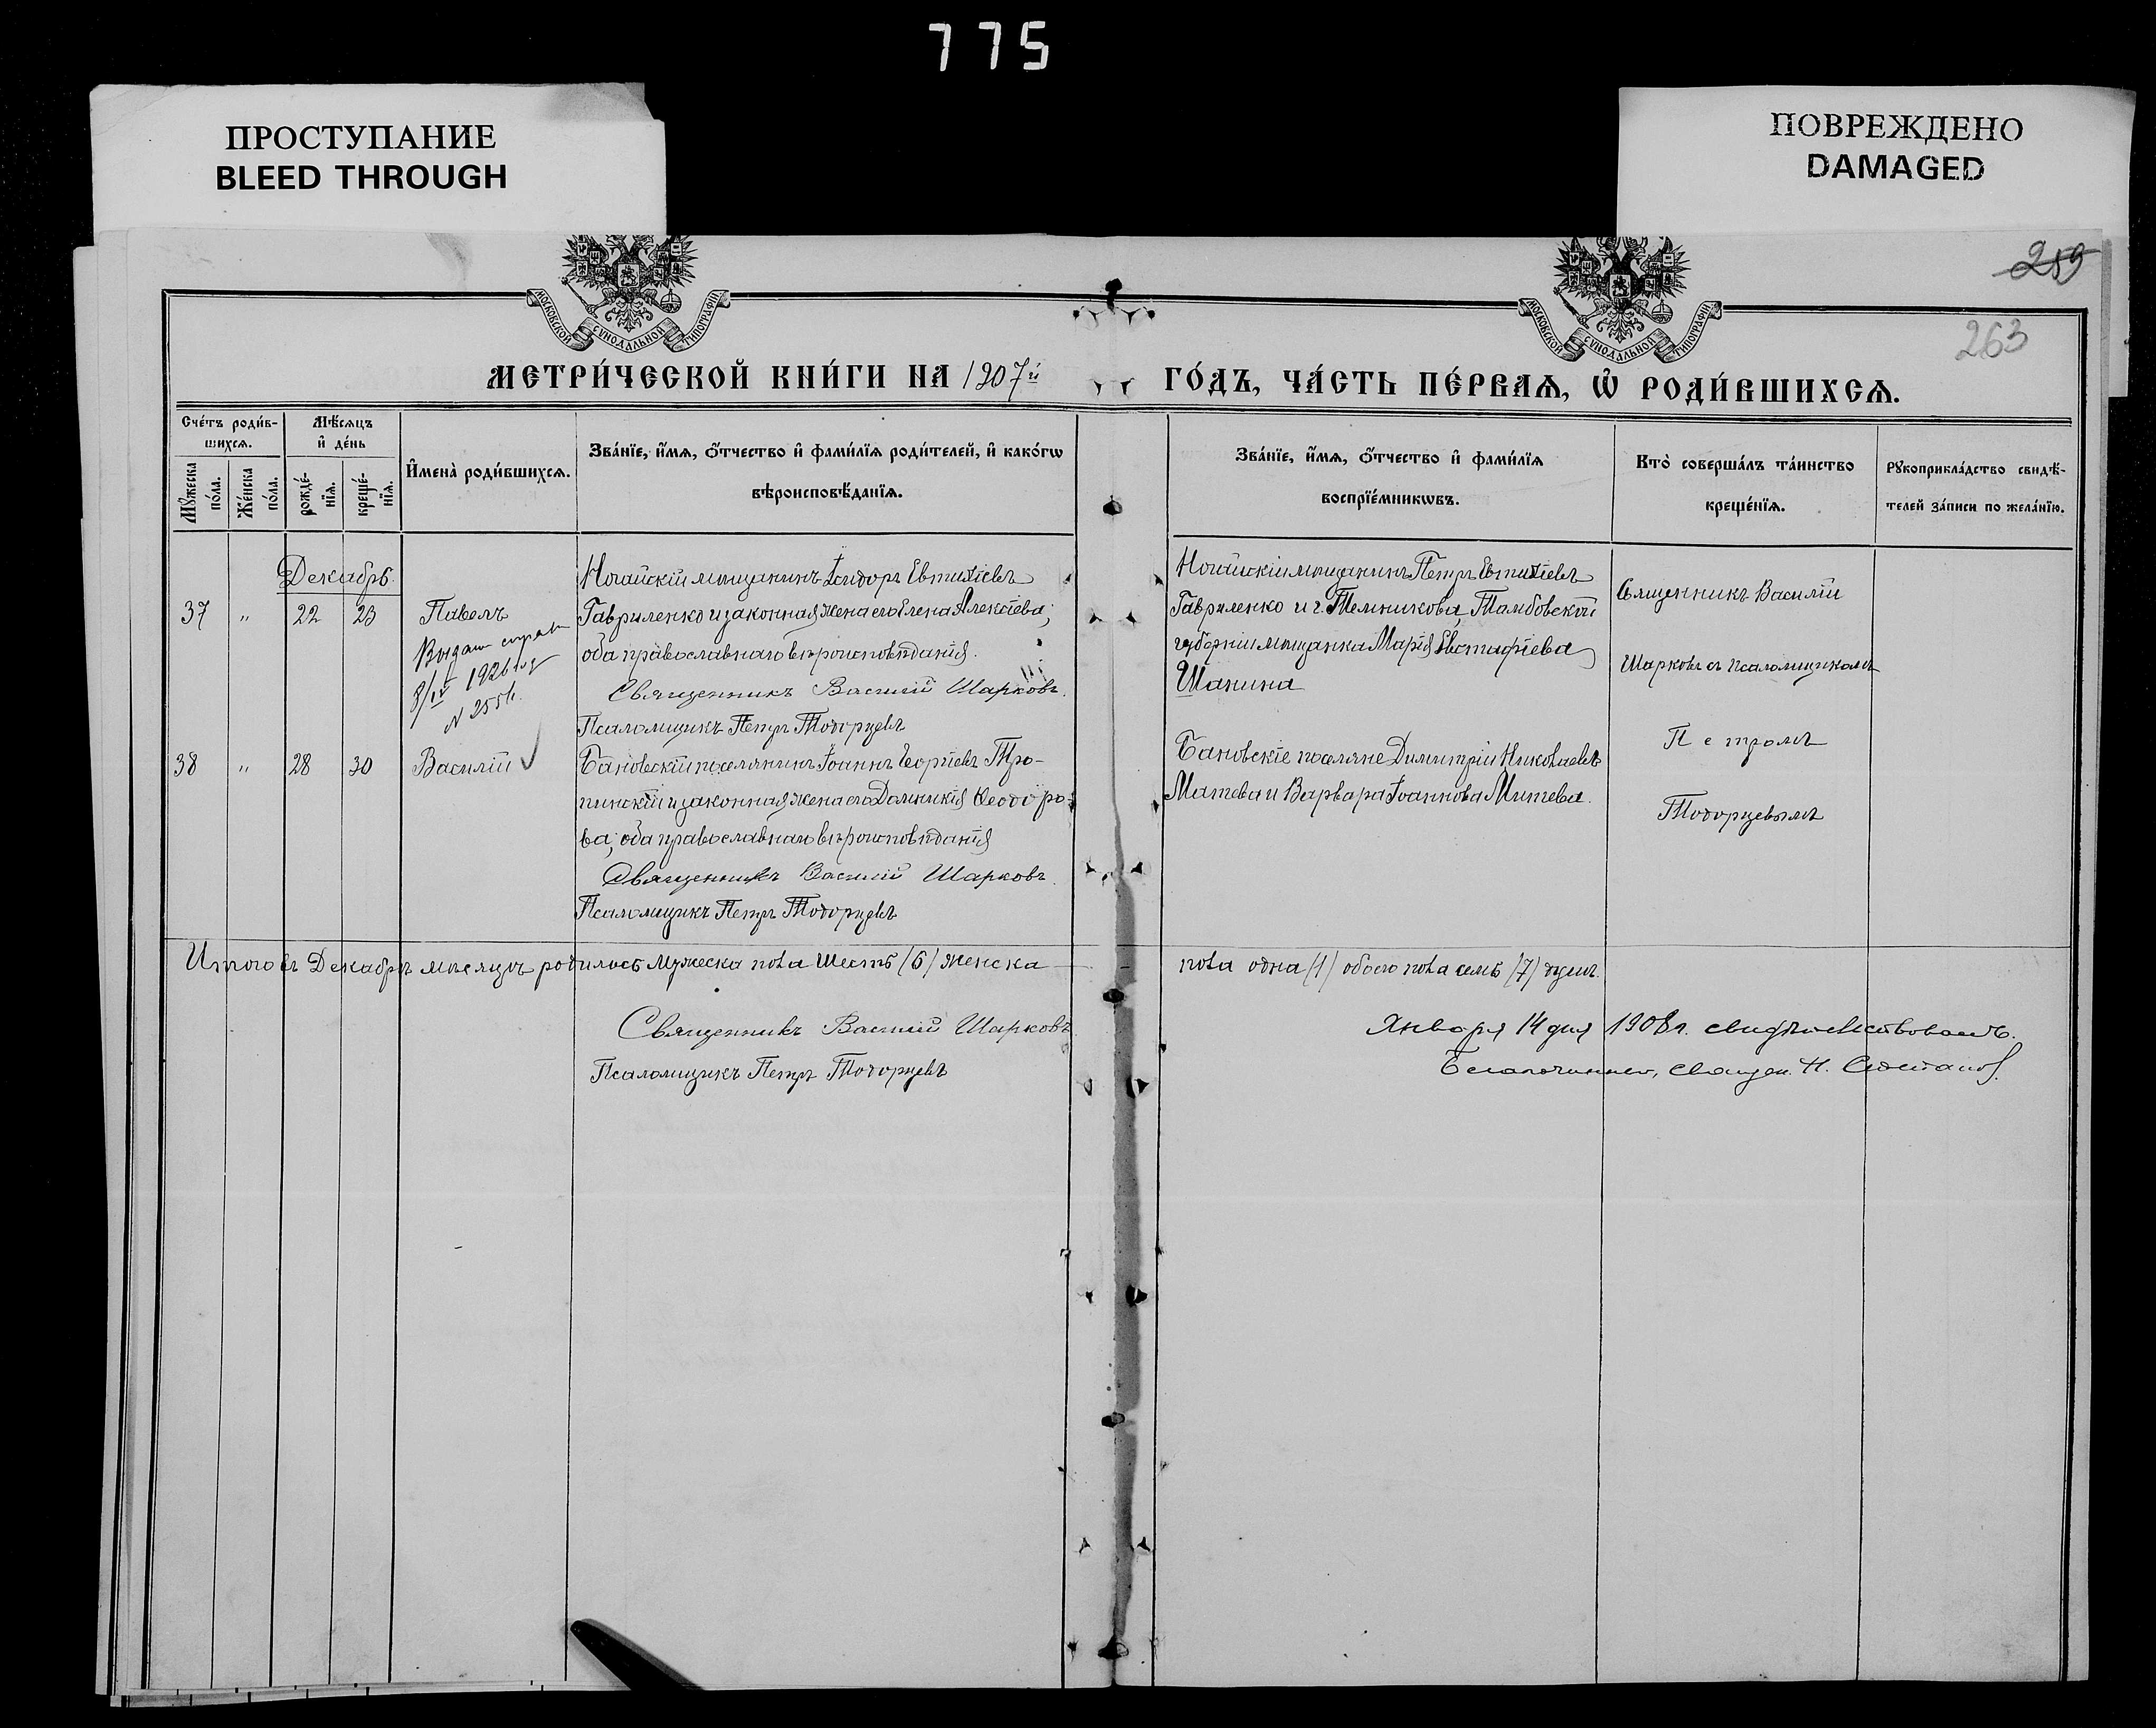 775
ПРОСТУПАНИЕ
BLEED THROUGH
ПОВРЕЖДЕНО
DAMAGED
МОСКОВСКОЙ СУНОДАЛЬНОЙ ТИПОГРАФІИ
МОСКОВСКОЙ СУНОДАЛЬНОЙ ТИПОГРАФІИ
259
263
МЕТРИ́ЧЕСКОЙ КНИ́ГИ НА 1907й ГО́ДЪ, ЧА́СТЬ ПЕ́РВАѦ, Ѡ҆ РОДИ́ВШИХСѦ.
Сче́тъ роди́в-
шихсѧ.
Мꙋжеска по́ла.
Же́нска по́ла.
Мѣ́сѧцъ
и҆ де́нь
рожде́-
нїѧ.
креще́-
нїѧ.
И҆мена̀ роди́вшихсѧ.
Зва́нїе, и҆́мѧ, ѻ҆́тчество и҆ фами́лїѧ роди́телей, и҆ како́гѡ
вѣроисповѣ́данїѧ.
Зва́нїе, и҆́мѧ, ѻ҆́тчество и҆ фами́лїѧ
воспрїе́мникѡвъ.
Кто̀ соверша́лъ та́инство
креще́нїѧ.
Рꙋкоприкла́дство свидѣ́-
телей за́писи по жела́нїю.
Декабрь.
37 " 22 23 Павелъ
Ногайскій мѣщанинъ Ісидоръ Евтихіевъ
Гавриленко и законная жена его Елена Алексіева;
оба православнаго вѣроисповѣданія.
Священникъ Василій Шарковъ.
Псаломщикъ Петръ Тодорцевъ
Ногайскій мѣщанинъ Петръ Евтихіевъ
Гавриленко и г. Темникова, Тамбовской
губерніи мѣщанка Марія Евстафіева
Шанина
Священникъ Василій
Шарковъ съ псаломщикомъ
Петромъ
Тодорцевымъ
1926
38 " 28 30 Василій
Бановскій поселянинъ Іоаннъ Георгіевъ Тро-
пинскій и законная жена его Домникія Ѳеодоро-
ва; оба православнаго вѣроисповѣданія
Священникъ Василій Шарковъ.
Псаломщикъ Петръ Тодорцевъ
Бановскіе поселяне Димитрій Николаевъ
Матева и Варвара Іоаннова Митева.
Итого въ Декабрѣ мѣсяцѣ родилось мужеска пола шесть (6) женска пола одна (1) обоего пола семь (7) душъ.
Священникъ Василій Шарковъ
Псаломщикъ Петръ Тодорцевъ
Января 14 дня 1908 г. свидѣтельствовалъ.
Благочинный, священ. Н.